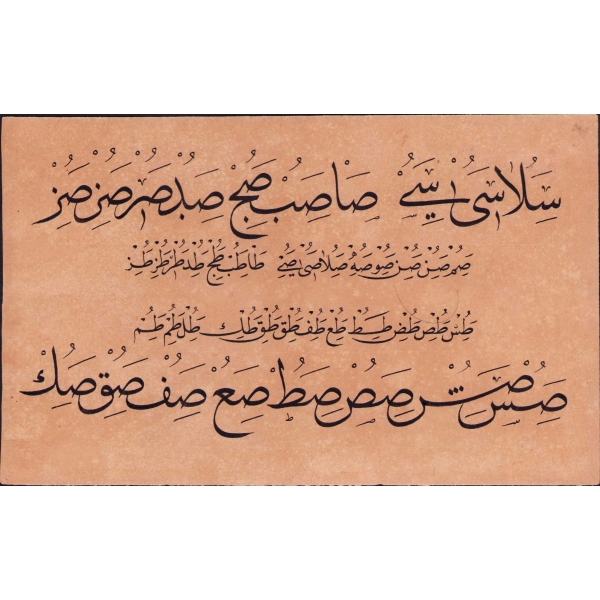 سلا سى سے صا صب صج صد صر صر صر
صم صن صن صو صه صلا صى صے طا طب طج طد طر طر طر
طس طص طط طع طف طق طك طل طم طم
صس صش صص صط صع صف صق صك